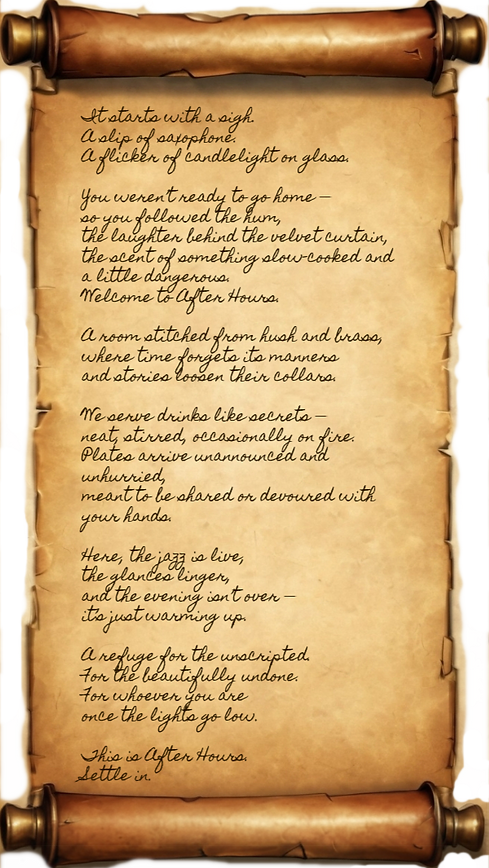 It starts with a sigh.
A slip of saxophone.
A flicker of candlelight on glass.
You weren't ready to go home —
so you followed the hum,
the laughter behind the velvet curtain,
the scent of something slow-cooked and
a little dangerous.
Welcome to After Hours.
A room stitched from hush and brass,
where time forgets its manners
and stories loosen their collars.
We serve drinks like secrets —
neat, stirred, occasionally on fire.
Plates arrive unannounced and
unhurried,
meant to be shared or devoured with
your hands.
Here, the jazz is live,
the glances linger,
and the evening isn't over —
it's just warming up.
A refuge for the unscripted.
For the beautifully undone.
For whoever you are
once the lights go low.
This is After Hours.
Settle in.